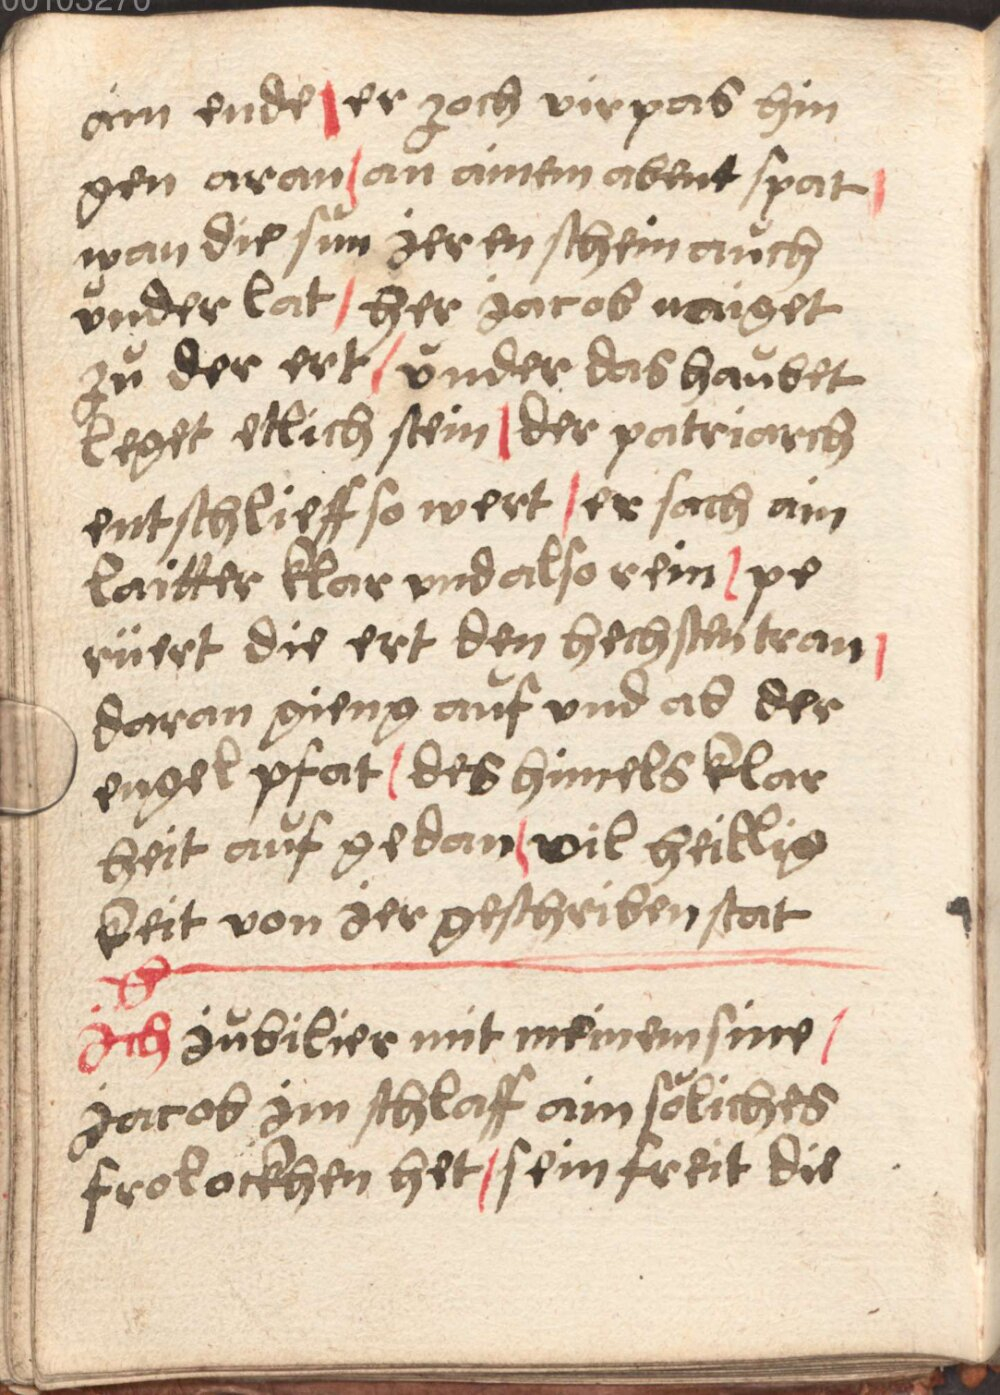 00103270
ain ende / er zoch virpas hin
gen aran / an ainem abent spat /
wan die sun jeren schein auch
vnder lat / her jacob naiget
zů der ert / vnder das haubet
leget etlich stein / der patriarch
entschlieff so wert / er sach ain
laitter klar vnd also rein / pe
rüert die ert den hechsten tran /
daran gieng auf vnd ab der
engel pfat / des himels klar
heit auf gedan / vil heillig
keit von jer geschriben stat
Ich jubilier mit meinem sine /
jacob jm schlaff ain söliches
frolockhen het / sein freit die